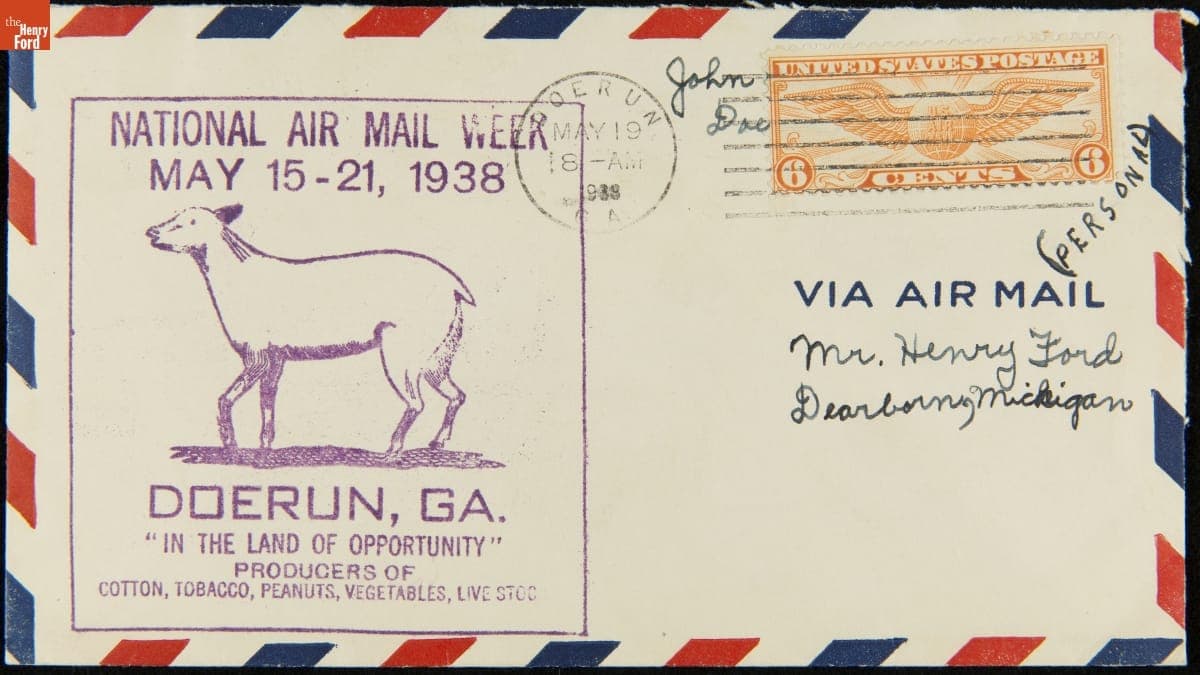 the
Henry
Ford
NATIONAL AIR MAIL WEEK
MAY 15-21, 1938
DOERUN, GA.
"IN THE LAND OF OPPORTUNITY"
PRODUCERS OF
COTTON, TOBACCO, PEANUTS, VEGETABLES, LIVE STOC
DOERUN
MAY 19
8-AM
1938
GA
John
Doe
UNITED STATES POSTAGE
6 CENTS 6
(PERSONAL)
VIA AIR MAIL
Mr. Henry Ford
Dearborn, Michigan